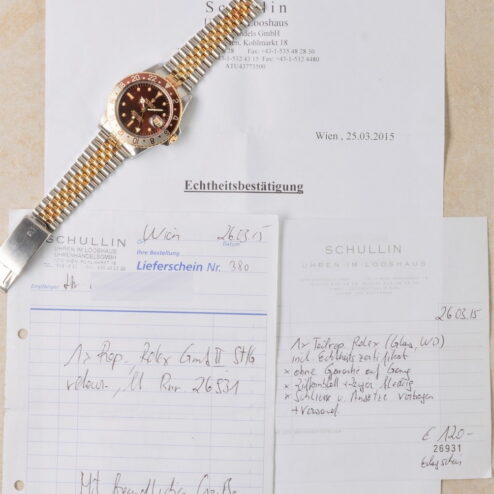 Schullin
Looshaus
handels GmbH
Kohlmarkt 18
Fax: +43-1-535 48 28 30
+43-1-532 43 15 Fax: +43-1-532 4480
ATU43773500
Wien , 25.03.2015
Echtheitsbestätigung
SCHULLIN
UHREN IM LOOSHAUS
UHRENHANDELSGMBH
Wien 26.03.15
Datum
Ihre Bestellung
Lieferschein Nr. 380
Empfänger
1x Rep. Rolex Gmt II St/G
11 Rnr 26931
Mit freundlichen Grüßen
SCHULLIN
UHREN IM LOOSHAUS
26.03.15
1x Rolex (Glas, WD)
incl Echtheitszertifikat
x ohne Garantie auf Gang
x Zifferblatt + Zeiger fleckig
x Schliesse u. Ansätze verbogen
€ 120-
26931